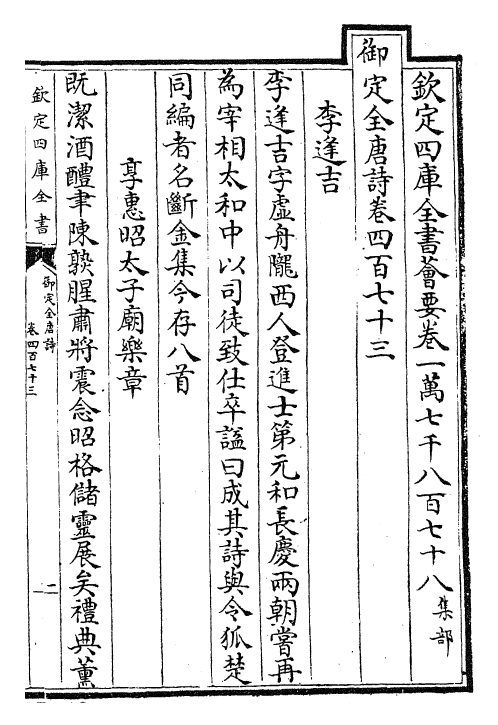 欽定四庫全書薈要卷一萬七千八百七十八 集部
御定全唐詩卷四百七十三
李逢吉
李逢吉字虛舟隴西人登進士第元和長慶兩朝嘗再
為宰相太和中以司徒致仕卒諡曰成其詩與令狐楚
同編者名斷金集今存八首
享惠昭太子廟樂章
既潔酒醴聿陳熟腥肅將震念昭格儲靈展矣禮典薰
欽定四庫全書
御定全唐詩
卷四百七十三
一